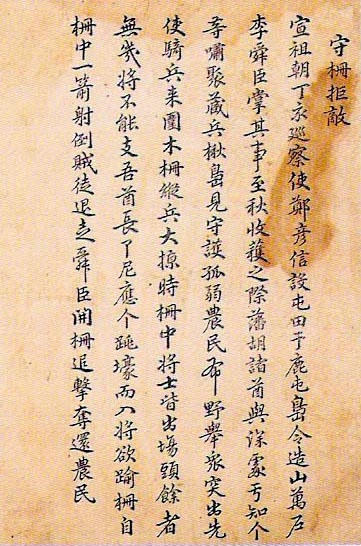 守柵拒敵
宣祖朝丁亥廵察使鄭彦信設屯田于鹿屯島令造山萬戶
李舜臣掌其事至秋收穫之際藩胡諸酋與深處亐知介
等嘯聚藏兵楸島見守護孤弱農民布野擧衆突出先
使騎兵来圍木柵縱兵大掠時柵中將士皆出塲頭餘者
無幾將不能支吾酋長亇尼應个跳壕而入將欲踰柵自
柵中一箭射倒賊徒退走舜臣開柵追擊奪還農民